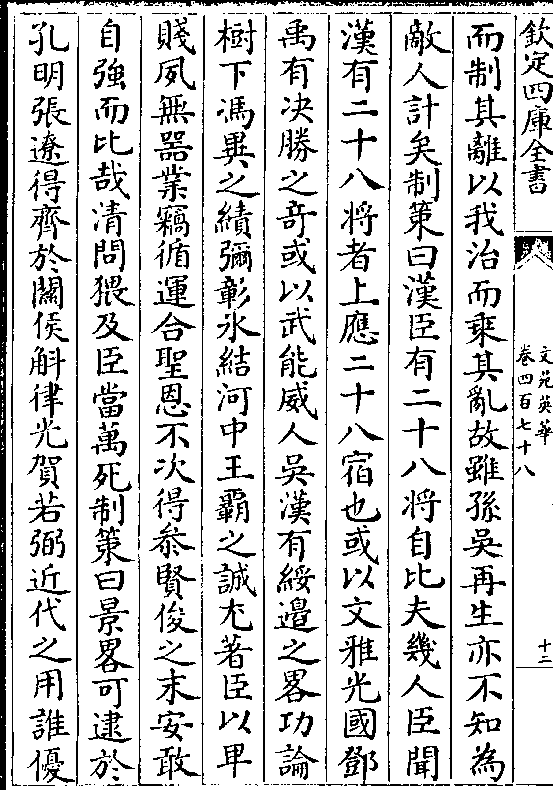 欽定四庫全書
文苑英華
卷四百七十八
十二
而制其離以我治而乘其亂故雖孫吳再生亦不知為
敵人計矣制策曰漢臣有二十八將自比夫幾人臣聞
漢有二十八將者上應二十八宿也或以文雅光國鄧
禹有决勝之竒或以武能威人吳漢有綏邉之畧功論
樹下馮異之績彌彰氷結河中王霸之誠尤著臣以卑
賤夙無器業竊循運合聖恩不次得叅賢俊之末安敢
自強而比哉清問猥及臣當萬死制策曰景畧可逮於
孔明張遼得齊於關侯斛律光賀若弼近代之用誰優